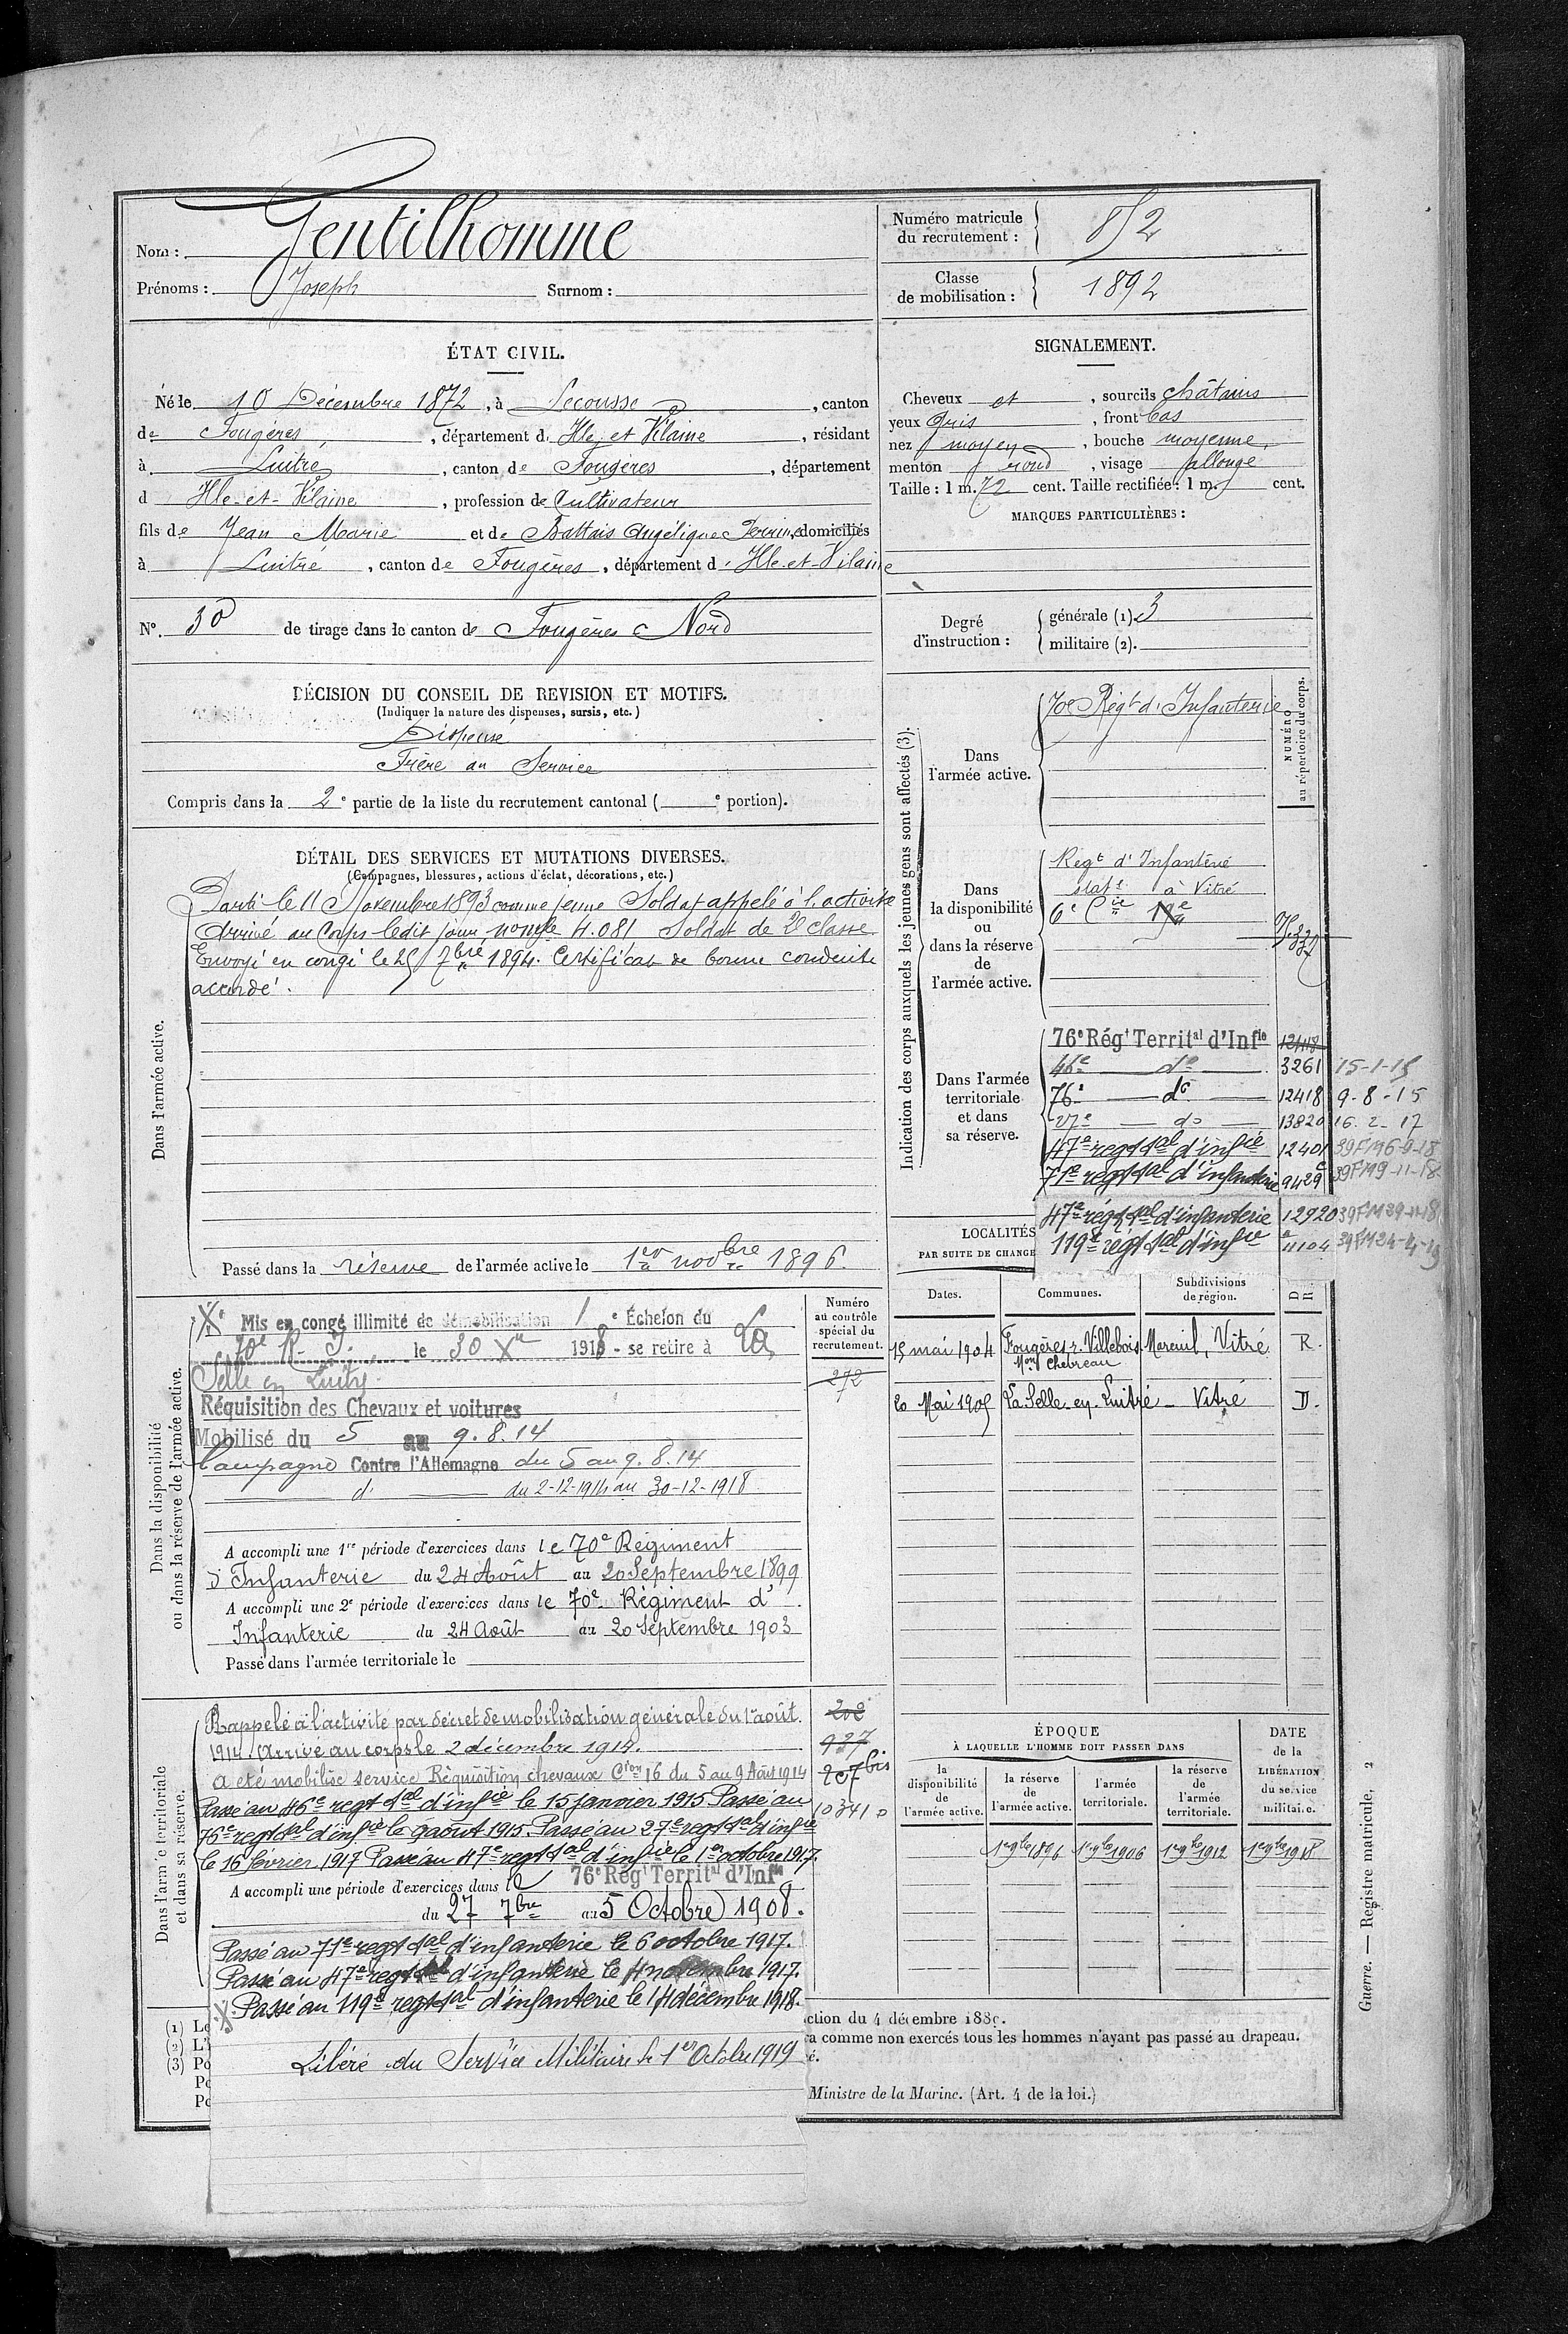 Nom : Gentilhomme
Prénoms : Joseph Surnom :
Numéro matricule du recrutement : 852
Classe de mobilisation : 1892
ÉTAT CIVIL.
Né le 10 Décembre 1872, à Lecousse, canton
de Fougères, département d. Ille et Vilaine, résidant
à Luitré, canton de Fougères, département
d Ille-et-Vilaine, profession de Cultivateur
fils de Jean Marie et de Battais Angélique Perrine, domiciliés
à Luitré, canton de Fougères, département d. Ille-et-Vilaine
N°. 30 de tirage dans le canton de Fougères Nord
SIGNALEMENT.
Cheveux et, sourcils châtains
yeux gris, front bas
nez moyen, bouche moyenne,
menton rond, visage allongé
Taille : 1 m. 72 cent. Taille rectifiée : 1 m. cent.
MARQUES PARTICULIÈRES :
Degré d'instruction :
générale (1). 3
militaire (2).
DÉCISION DU CONSEIL DE REVISION ET MOTIFS.
(Indiquer la nature des dispenses, sursis, etc.)
Dispensé
Frère au Service
Compris dans la 2e partie de la liste du recrutement cantonal ( e portion).
DÉTAIL DES SERVICES ET MUTATIONS DIVERSES.
(Campagnes, blessures, actions d'éclat, décorations, etc.)
Dans l'armée active.
Parti le 11 Novembre 1893 comme jeune Soldat appelé à l'activité
Arrivé au Corps ledit jour, 4.081 Soldat de 2e classe.
Envoyé en congé le 25 7bre 1894. Certificat de bonne conduite
accordé.
Passé dans la réserve de l'armée active le 1er novbre 1896.
Indication des corps auxquels les jeunes gens sont affectés (3).
NUMÉRO au répertoire du corps.
Dans l'armée active.
70e Régt d'Infanterie
Dans la disponibilité ou dans la réserve de l'armée active.
Regt d'Infanterie
statt à Vitré
6e Cie
Dans l'armée territoriale et dans sa réserve.
76e Régt Territal d'Infie 12418
46e do 3261 15-1-15
76e do 12418 9-8-15
27e do 13820 16.2.17
47e regt tal d'infie 12401 39FM6-9-18
71e regt tal d'infanterie 9429 39FM9-11-18
47e régt tal d'infanterie 12920 39FM29-11-18
119e régt tal d'infie 11104 39FM24-4-19
LOCALITÉS
PAR SUITE DE CHANGE
Dates. Communes. Subdivisions de région. D R
15 mai 1904 Fougères, r. Villebois-Mareuil, Vitré R.
Mon Chebreau
20 Mai 1905 La Selle-en-Luitré - Vitré D.
Dans la disponibilité ou dans la réserve de l'armée active.
Numéro au contrôle spécial du recrutement.
272
Mis en congé illimité de démobilisation 1e Échelon du
70e R. I. le 30 Xbre 1918 - se retire à La
Selle en Luitré.
Réquisition des Chevaux et voitures
Mobilisé du 5 au 9.8.14
Campagne Contre l'Allemagne du 5 au 9.8.14
do du 2-12-1914 au 30-12-1918
A accompli une 1re période d'exercices dans le 70e Régiment
d'Infanterie du 24 Août au 20 Septembre 1899
A accompli une 2e période d'exercices dans le 70e Régiment d'
Infanterie du 24 Août au 20 Septembre 1903
Passé dans l'armée territoriale le
Dans l'armée territoriale et dans sa réserve.
Rappelé à l'activité par décret de mobilisation générale du 1er août
1914. Arrivé au corps le 2 décembre 1914.
a été mobilisé service Réquisition chevaux Cion 16 du 5 au 9 Août 1914
Passé au 46e regt tal d'infie le 15 janvier 1915 Passé au
76e regt tal d'infie le 9 août 1915. Passé au 27e regt tal d'infie
le 16 février 1917 Passé au 47e regt tal d'infie le 1er octobre 1917.
A accompli une période d'exercices dans le 76e Régt Territal d'Infie
du 27 7bre au 5 Octobre 1908.
Passé au 71e regt tal d'infanterie le 6 octobre 1917.
Passé au 47e regt tal d'infanterie le 4 novembre 1917.
X Passé au 119e regt tal d'infanterie le 14 décembre 1918.
Libéré du Service Militaire le 1er Octobre 1919
202
937
207 bis
10341
ÉPOQUE
À LAQUELLE L'HOMME DOIT PASSER DANS
la disponibilité de l'armée active. la réserve de l'armée active. l'armée territoriale. la réserve de l'armée territoriale.
DATE de la LIBÉRATION du service militaire.
1er 9bre 1896 1er 9bre 1906 1er 9bre 1912 1er 9bre 1918
(1) Le
(2) L'i
(3) Po
Po
Po
ction du 4 décembre 1889.
ra comme non exercés tous les hommes n'ayant pas passé au drapeau.
é.
Ministre de la Marine. (Art. 4 de la loi.)
Guerre. — Registre matricule, 2